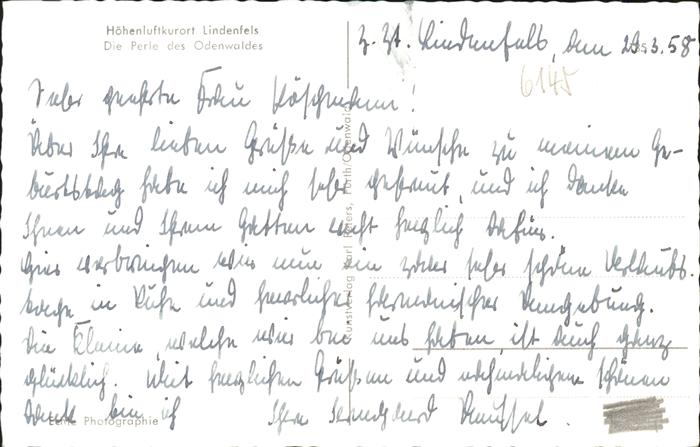 Höhenluftkurort Lindenfels
Die Perle des Odenwaldes
z. Zt. Lindenfels, den 29.3.58
6145
Sehr geehrte Frau Köschmann!
Über Ihre lieben Grüße und Wünsche zu meinem Ge-
burtstag habe ich mich sehr gefreut, und ich danke
Ihnen und Ihrem Gatten recht herzlich dafür.
Hier verbringen wir nun ein paar sehr schöne Urlaubs-
tage in Ruhe und herrlicher Umgebung.
Die Kleine, welche wir bei uns haben, ist auch ganz
glücklich. Mit herzlichen Grüßen und nochmaligem schönen
Dank bin ich Ihre
Echte Photographie
Kunstverlag Karl Peters, Fürth/Odenwald